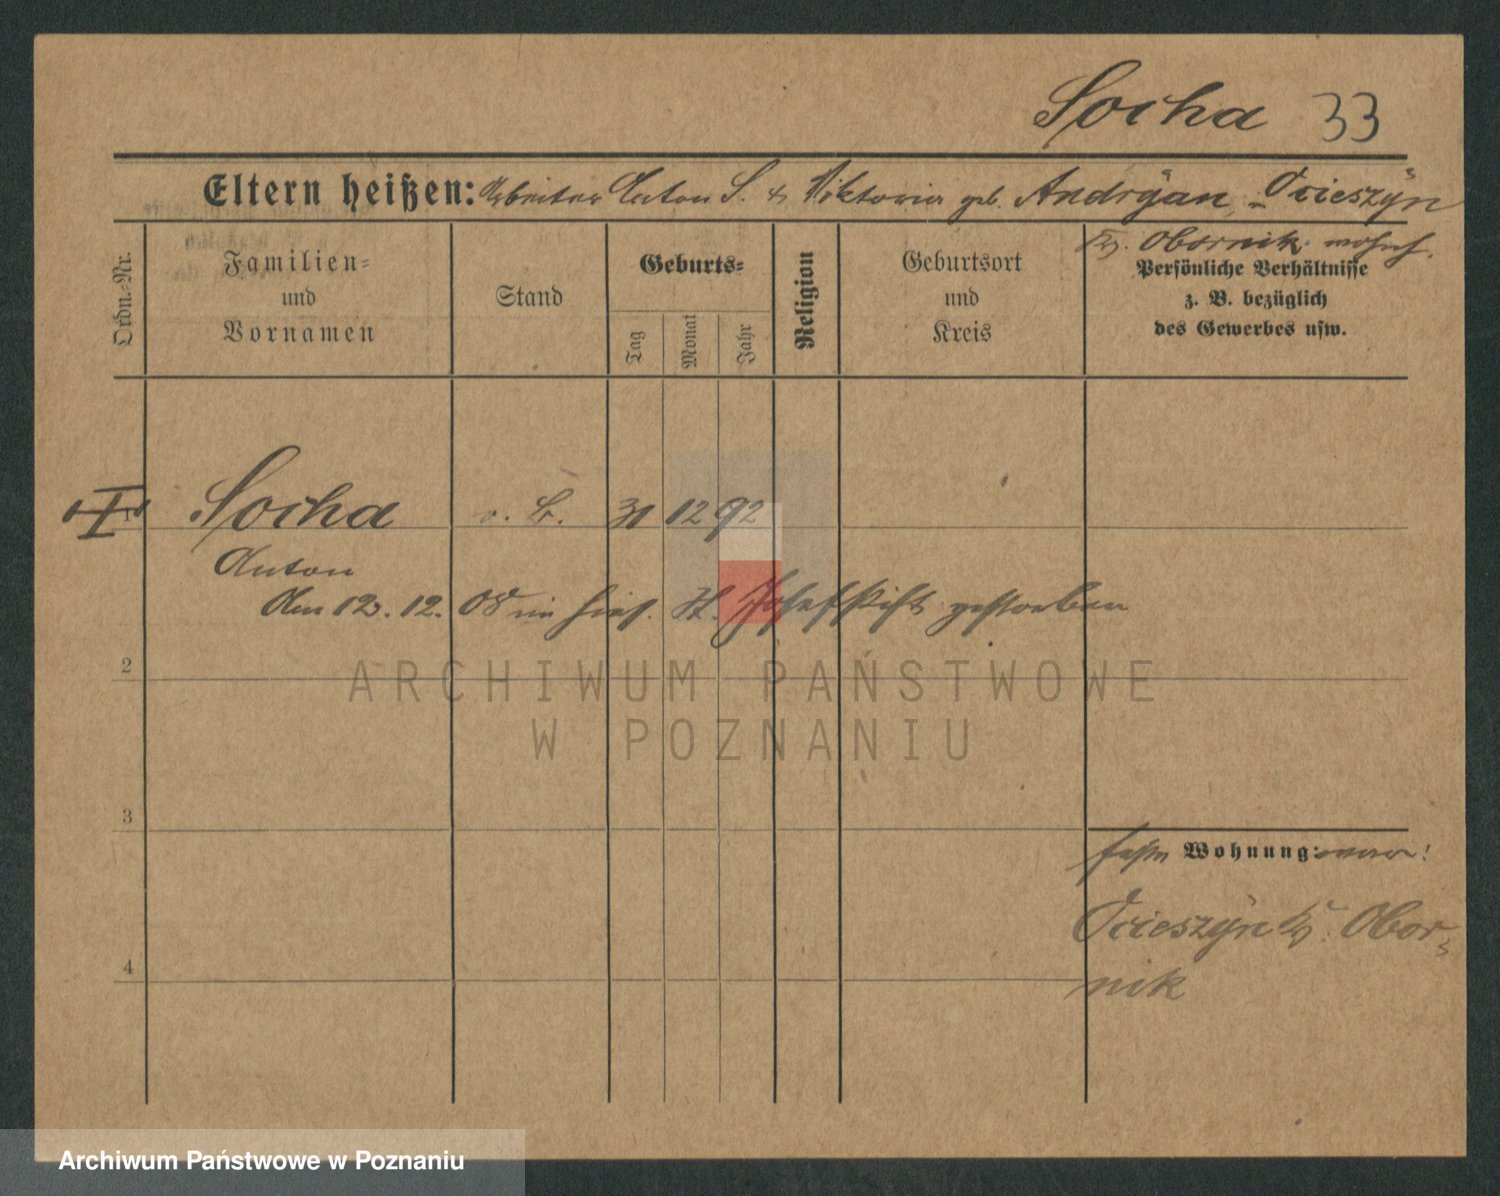 Socha 33
Eltern heißen: Arbeiter Anton S. & Viktoria geb. Andrÿan, Ocieszÿn
Kr. Obornik wohnh.
Ordn.-Nr.
Familien-
und
Vornamen
Stand
Geburts-
Tag
Monat
Jahr
Religion
Geburtsort
und
Kreis
Persönliche Verhältnisse
z. B. bezüglich
des Gewerbes usw.
1 Socha o. B. 31 12 92
Anton
den 12. 12. 08 im hies. St. Josefstift gestorben
2
3
4
Wohnung: war!
Ocieszÿn Kr. Obor-
nik
ARCHIWUM PAŃSTWOWE
W POZNANIU
Archiwum Państwowe w Poznaniu